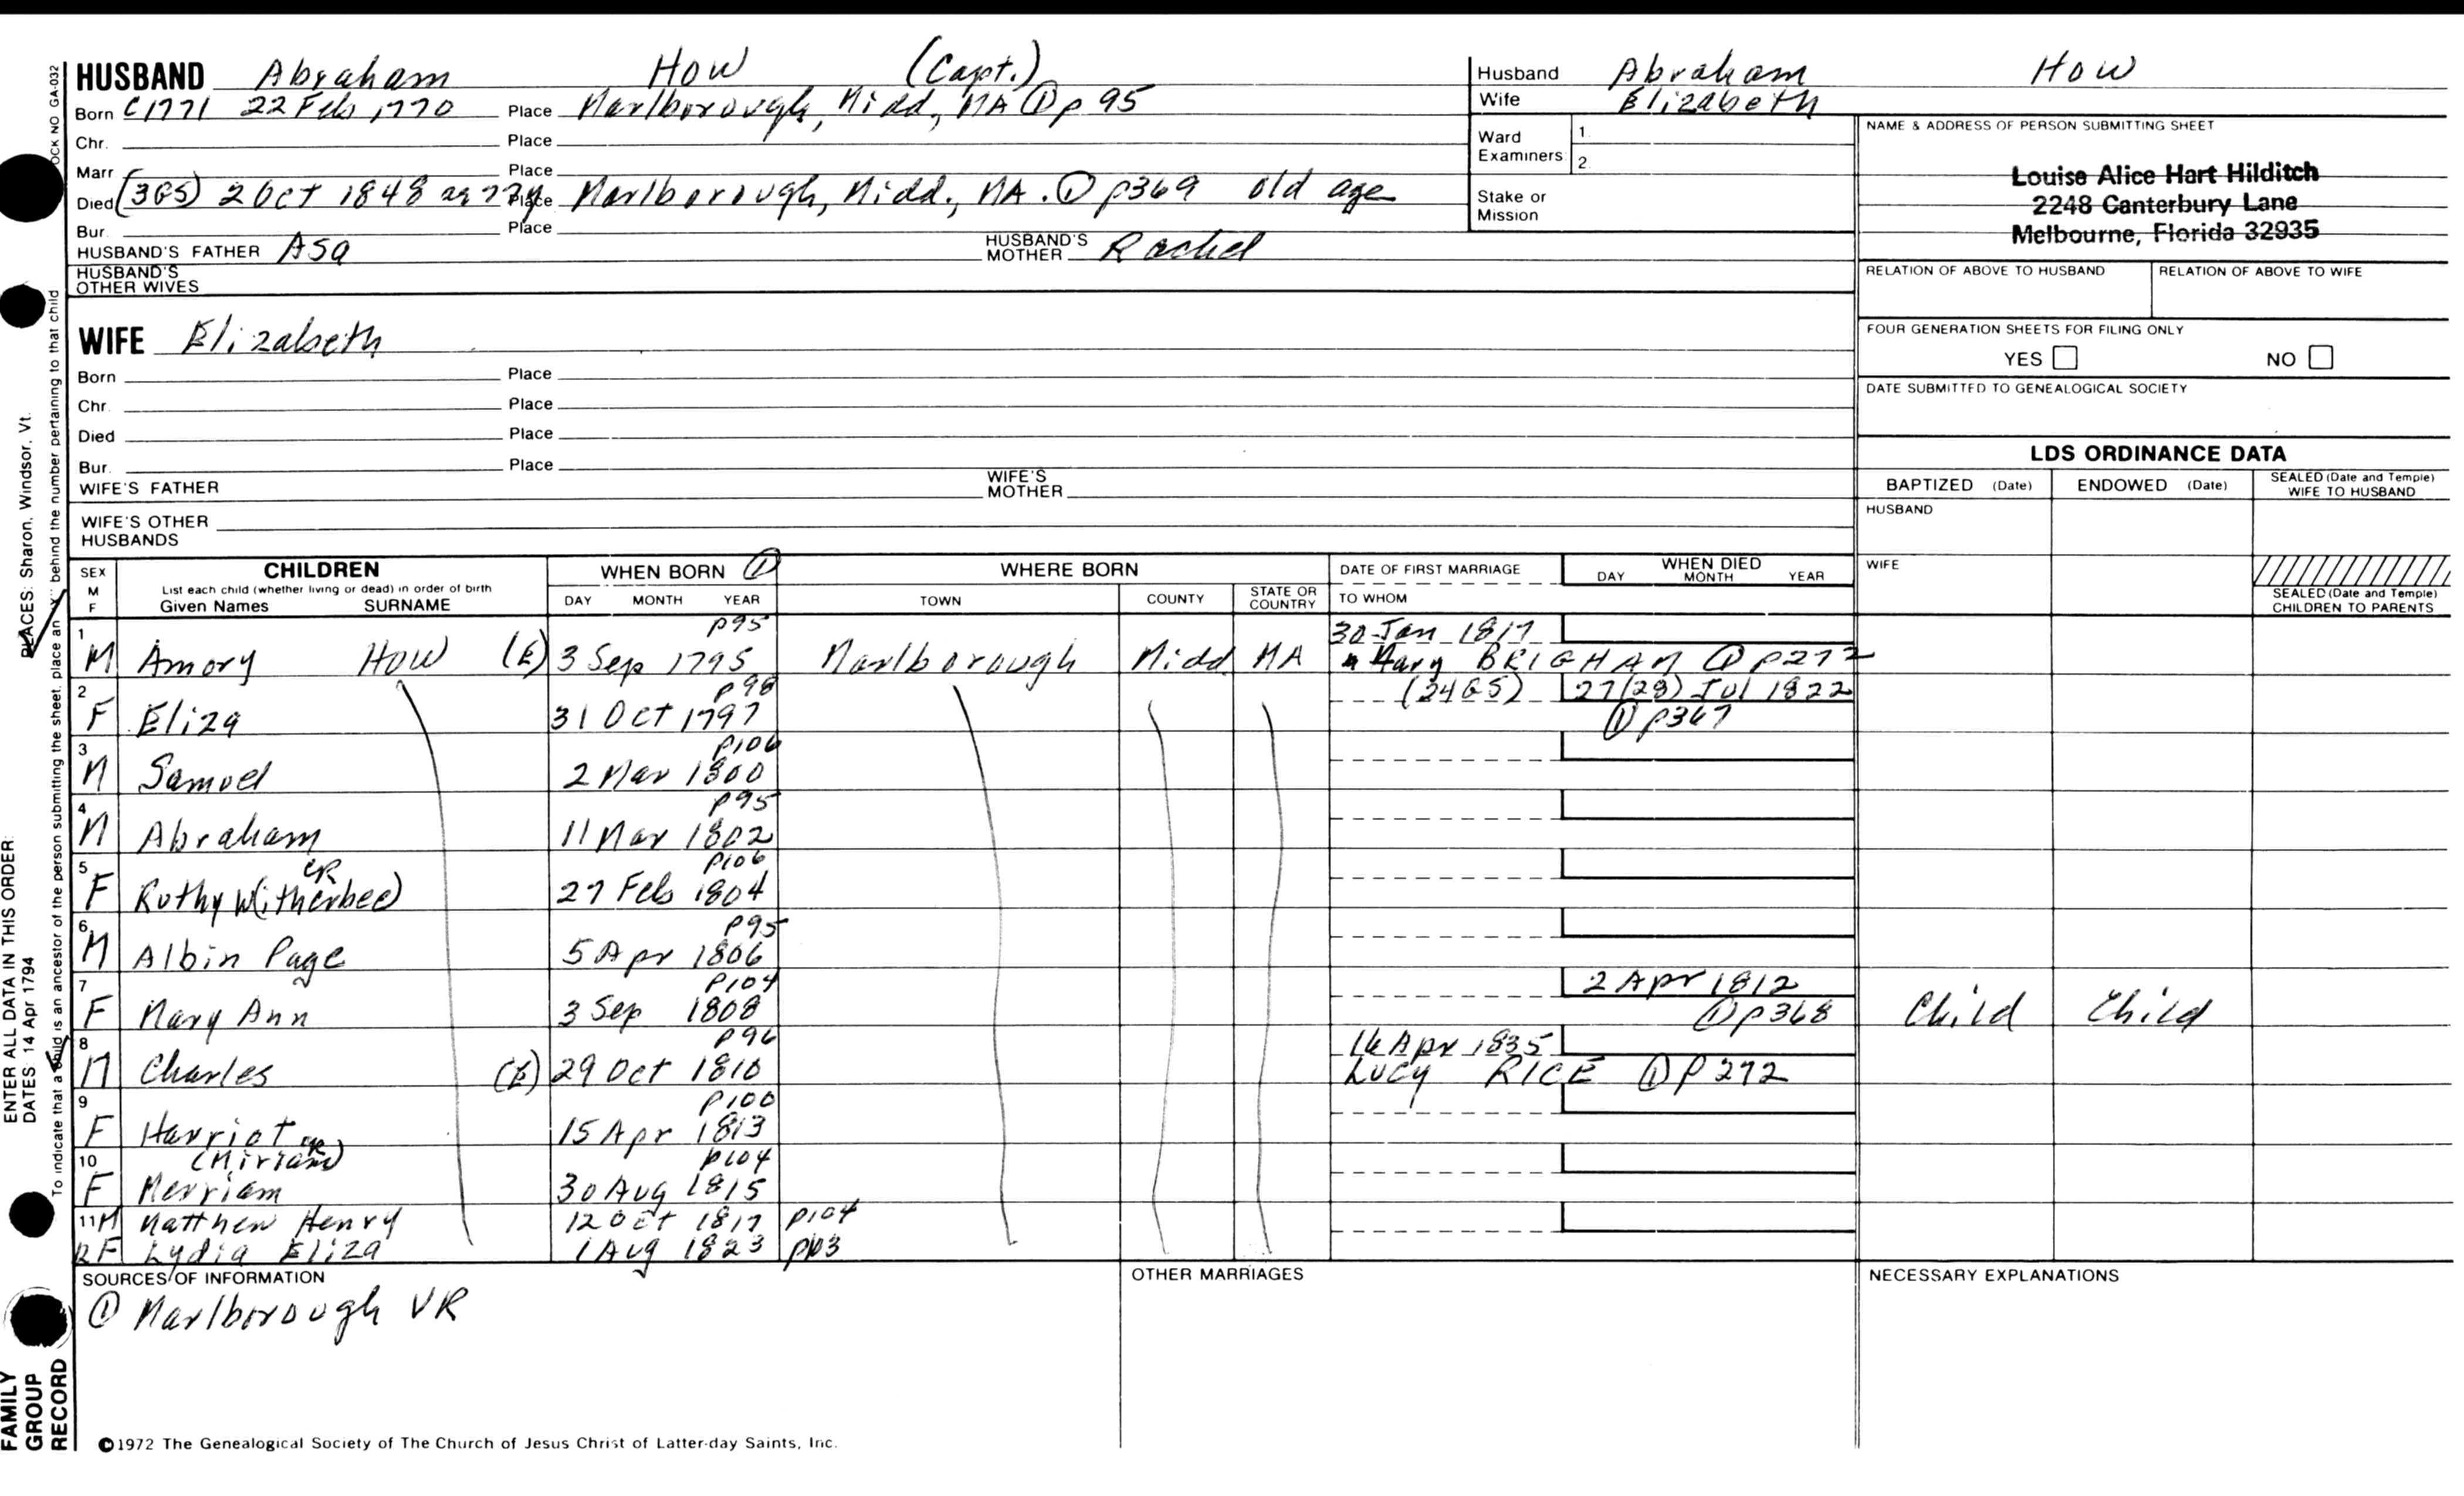 HUSBAND Abraham How (Capt.)
Born C1771 22 Feb 1770 Place Marlborough, Midd, MA ① p 95
Chr. Place
Marr Place
Died (3GS) 2 Oct 1848 ae 77y Place Marlborough, Midd., MA. ① p369 old age
Bur. Place
HUSBAND'S FATHER Asa HUSBAND'S MOTHER Rachel
HUSBAND'S
OTHER WIVES
WIFE Elizabeth
Born Place
Chr. Place
Died Place
Bur. Place
WIFE'S FATHER WIFE'S MOTHER
WIFE'S OTHER
HUSBANDS
Husband Abraham How
Wife Elizabeth
Ward 1.
Examiners: 2.
Stake or
Mission
NAME & ADDRESS OF PERSON SUBMITTING SHEET
Louise Alice Hart Hilditch
2248 Canterbury Lane
Melbourne, Florida 32935
RELATION OF ABOVE TO HUSBAND RELATION OF ABOVE TO WIFE
FOUR GENERATION SHEETS FOR FILING ONLY
YES NO
DATE SUBMITTED TO GENEALOGICAL SOCIETY
LDS ORDINANCE DATA
BAPTIZED (Date) ENDOWED (Date) SEALED (Date and Temple) WIFE TO HUSBAND
HUSBAND
WIFE
SEALED (Date and Temple)
CHILDREN TO PARENTS
SEX M F CHILDREN WHEN BORN ① WHERE BORN DATE OF FIRST MARRIAGE WHEN DIED
List each child (whether living or dead) in order of birth
Given Names SURNAME DAY MONTH YEAR TOWN COUNTY STATE OR COUNTRY TO WHOM DAY MONTH YEAR
1 p95 30 Jan 1817
M Amory How (E) 3 Sep 1795 Marlborough Midd MA Mary BRIGHAM ① p272
2 p98 (24GS) 27(28) Jul 1822
F Eliza 31 Oct 1797 ① p367
3 p106
M Samuel 2 Mar 1800
4 p95
M Abraham 11 Mar 1802
5 CR p106
F Ruthy W(itherbee) 27 Feb 1804
6 p95
M Albin Page 5 Apr 1806
7 p104 2 Apr 1812
F Mary Ann 3 Sep 1808 ① p368 Child Child
8 p96 16 Apr 1835
M Charles (E) 29 Oct 1810 Lucy RICE ① p 272
9 p100
F Harriot 15 Apr 1813
10 (Miriam) p104
F Merriam 30 Aug 1815
11 M Matthew Henry 12 Oct 1817 p104
12 F Lydia Eliza 1 Aug 1823 p103
SOURCES OF INFORMATION OTHER MARRIAGES NECESSARY EXPLANATIONS
① Marlborough VR
©1972 The Genealogical Society of The Church of Jesus Christ of Latter-day Saints, Inc.
OCK NO GA-032
To indicate that a child is an ancestor of the person submitting the sheet, place an behind the number pertaining to that child
PLACES: Sharon, Windsor, Vt.
ENTER ALL DATA IN THIS ORDER:
DATES 14 Apr 1794
FAMILY
GROUP
RECORD